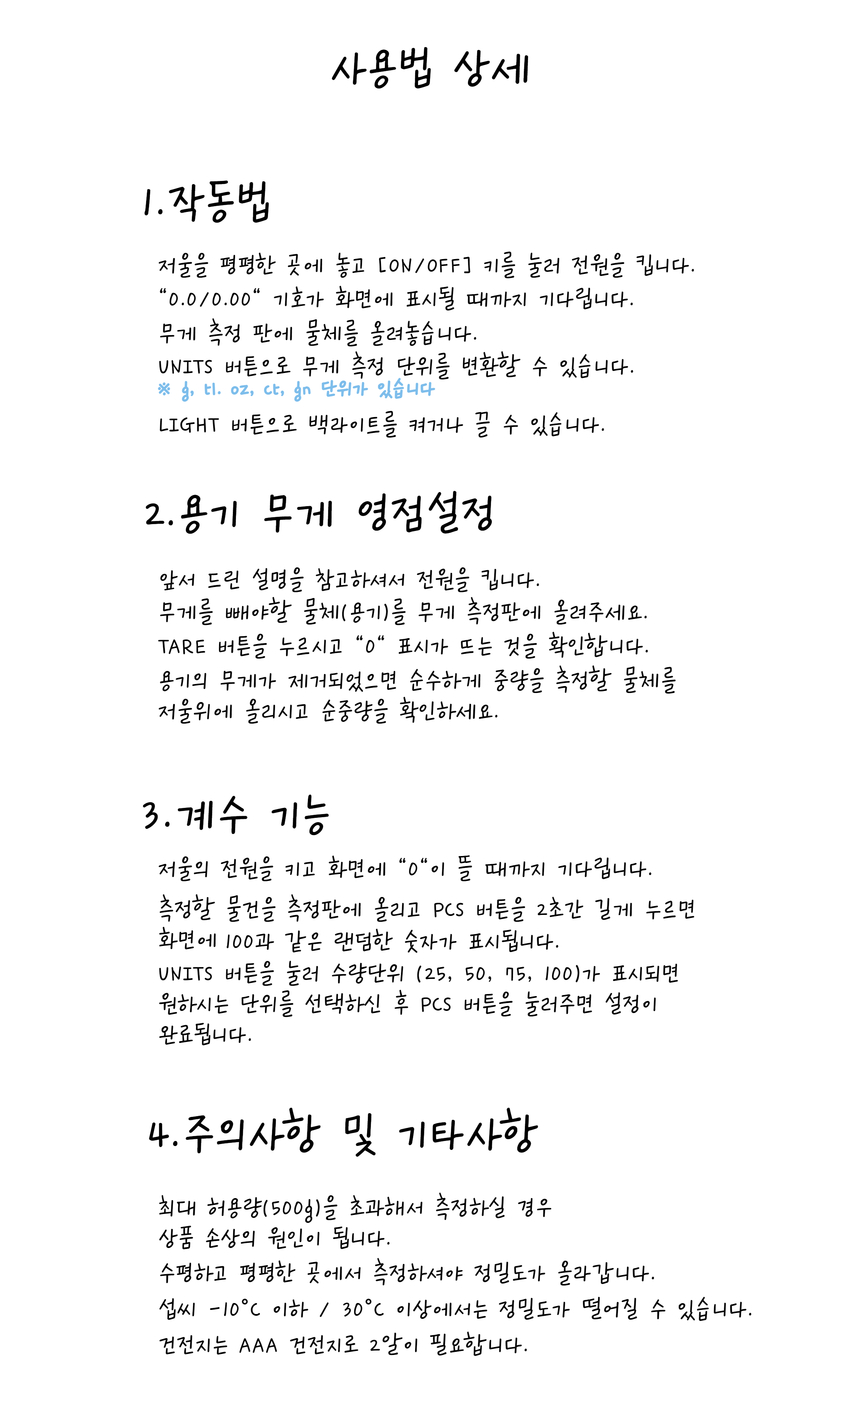 사용법 상세
1.작동법
저울을 평평한 곳에 놓고 [ON/OFF] 키를 눌러 전원을 킵니다.
“0.0/0.00“ 기호가 화면에 표시될 때까지 기다립니다.
무게 측정 판에 물체를 올려놓습니다.
UNITS 버튼으로 무게 측정 단위를 변환할 수 있습니다.
※ g, tl. oz, ct, gn 단위가 있습니다
LIGHT 버튼으로 백라이트를 켜거나 끌 수 있습니다.
2.용기 무게 영점설정
앞서 드린 설명을 참고하셔서 전원을 킵니다.
무게를 빼야할 물체(용기)를 무게 측정판에 올려주세요.
TARE 버튼을 누르시고 “0“ 표시가 뜨는 것을 확인합니다.
용기의 무게가 제거되었으면 순수하게 중량을 측정할 물체를
저울위에 올리시고 순중량을 확인하세요.
3.계수 기능
저울의 전원을 키고 화면에 “0“이 뜰 때까지 기다립니다.
측정할 물건을 측정판에 올리고 PCS 버튼을 2초간 길게 누르면
화면에 100과 같은 랜덤한 숫자가 표시됩니다.
UNITS 버튼을 눌러 수량단위 (25, 50, 75, 100)가 표시되면
원하시는 단위를 선택하신 후 PCS 버튼을 눌러주면 설정이
완료됩니다.
4.주의사항 및 기타사항
최대 허용량(500g)을 초과해서 측정하실 경우
상품 손상의 원인이 됩니다.
수평하고 평평한 곳에서 측정하셔야 정밀도가 올라갑니다.
섭씨 -10°C 이하 / 30°C 이상에서는 정밀도가 떨어질 수 있습니다.
건전지는 AAA 건전지로 2알이 필요합니다.